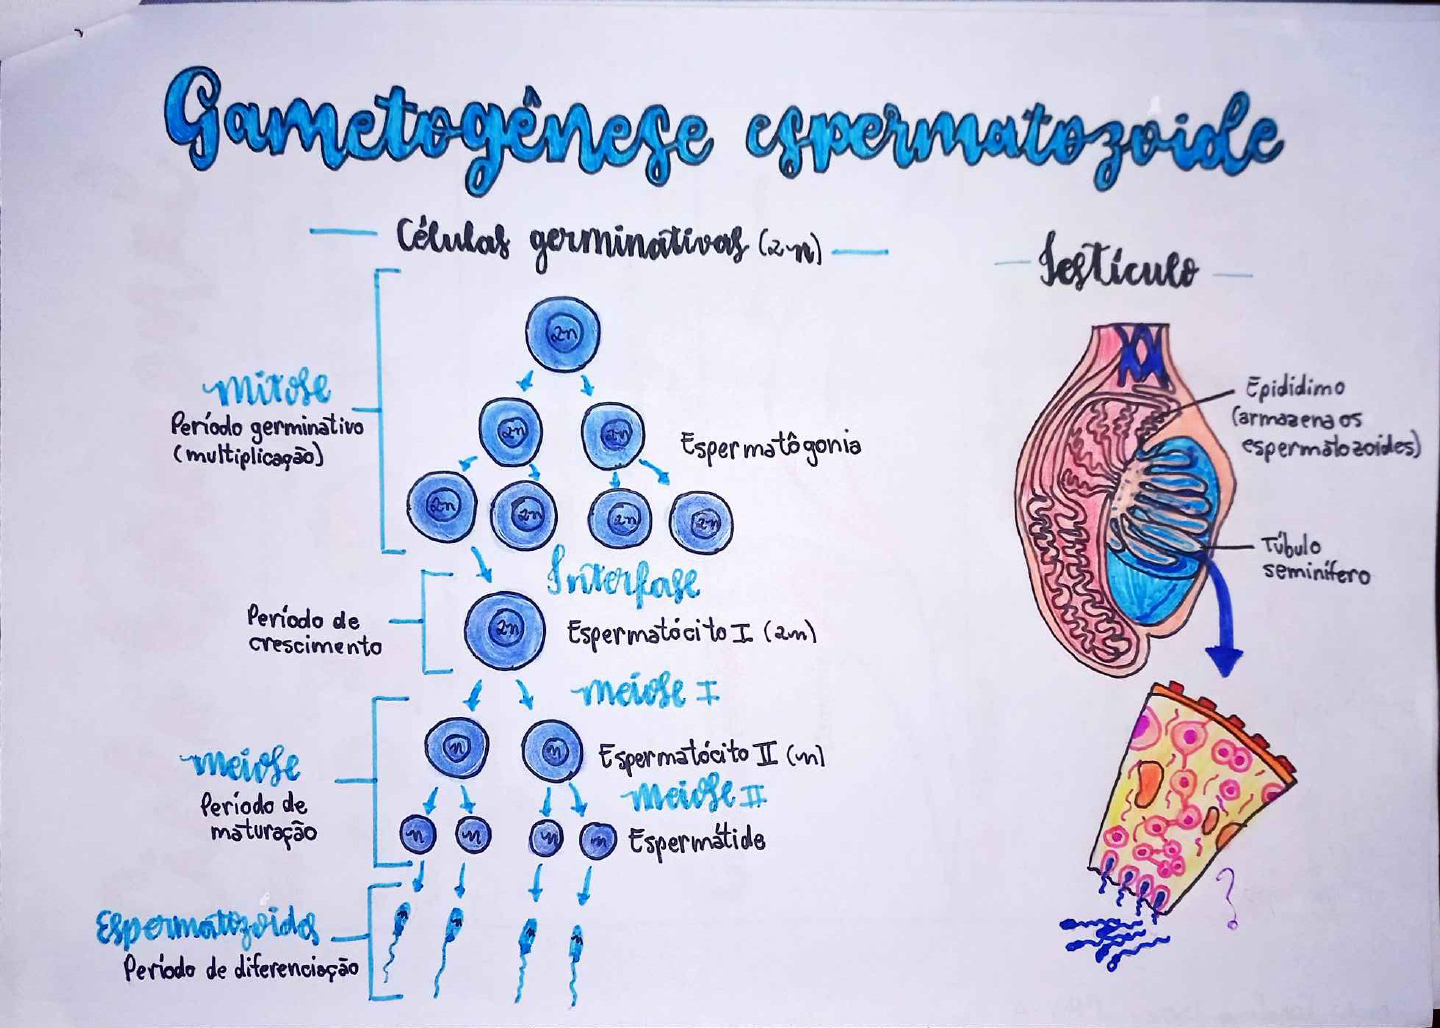 Gametogênese espermatozoide
Células germinativas (2n)
2n
Mitose
Período germinativo
(multiplicação)
2n
2n
Espermatôgonia
2n
2n
2n
2n
Interfase
Período de
crescimento
2n
Espermatócito I (2n)
Meiose I
Meiose
Período de
maturação
n
n
Espermatócito II (n)
Meiose II
n
n
n
n
Espermátide
Espermatozoides
Período de diferenciação
n
Testículo
Epidídimo
(armazena os
espermatozoides)
Túbulo
seminífero
?